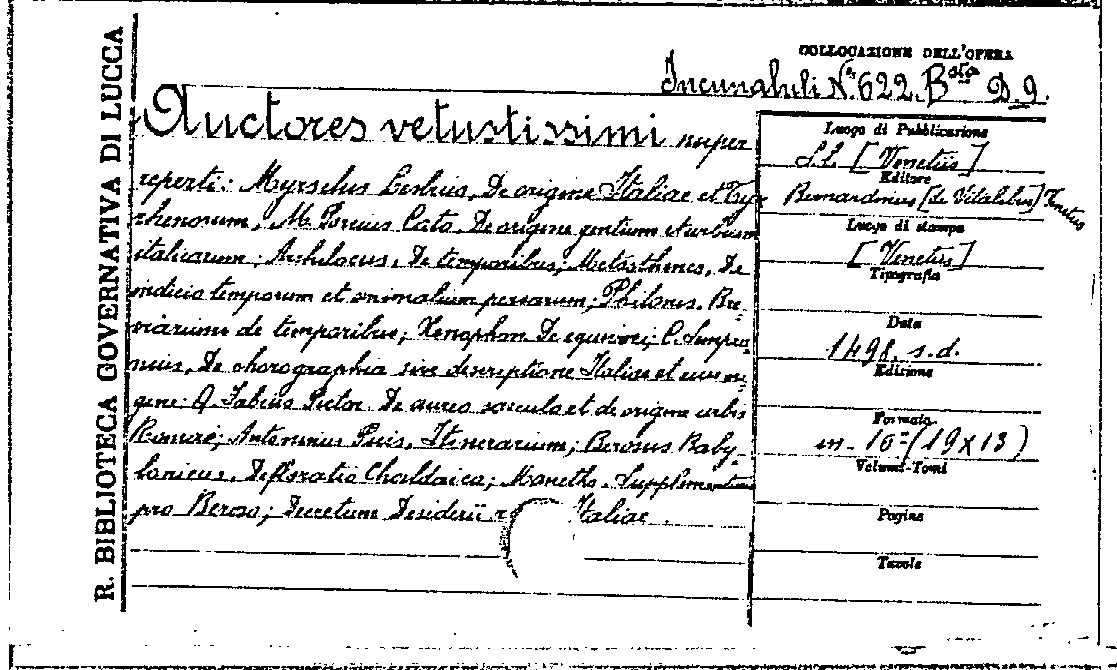 R. BIBLIOTECA GOVERNATIVA DI LUCCA
COLLOCAZIONE DELL'OPERA
Incunabuli N. 622. B D. 9.
Auctores vetustissimi nuper
reperti: Myrsilus Lesbius, De origine Italiae et Tyr
rhenorum, M. Porcius Cato, De origine gentium et urbium
italicarum; Archilocus, De temporibus; Metasthenes, De
indicio temporum et animalium persarum; Philonis, Bre-
viarium de temporibus; Xenophon, De equivocis; C. Sempro-
nius, De chorographia sive descriptione Italiae et eius ori-
gene: Q. Fabius Pictor De aureo saeculo et de origine urbis
Romae; Antoninus Pius, Itinerarium; Berosus Baby-
lonicus, Defloratio Chaldaica; Manetho, Supplementum
pro Beroso; Decretum Desiderii Italiae.
Luogo di Pubblicazione
S.l. [Venetiis]
Editore
Bernardinus [de Vitalibus] Venetus
Luogo di stampa
[Venetiis]
Tipografia
Data
1498, s.d.
Edizione
Formato
in-10° (19x13)
Volumi-Tomi
Pagine
Tavole